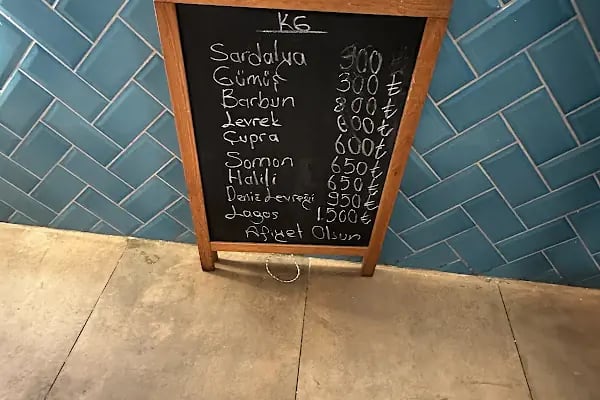 KG
Sardalya 300 ₺
Gümüş 300 ₺
Barbun 800 ₺
Levrek 600 ₺
Çupra 600 ₺
Somon 650 ₺
Halili 650 ₺
Deniz Levreği 950 ₺
Lagos 1.500 ₺
Afiyet Olsun